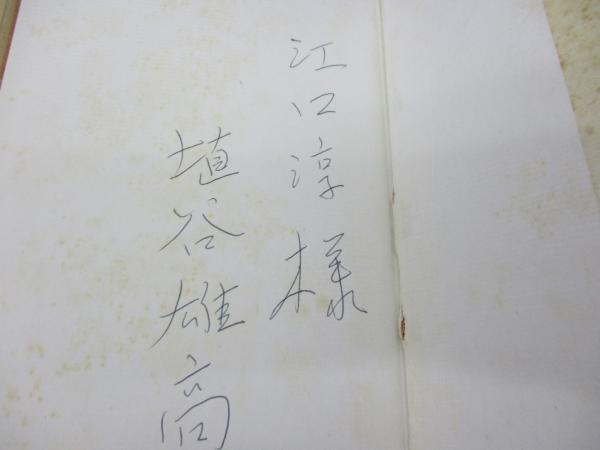 江口淳様
埴谷雄高